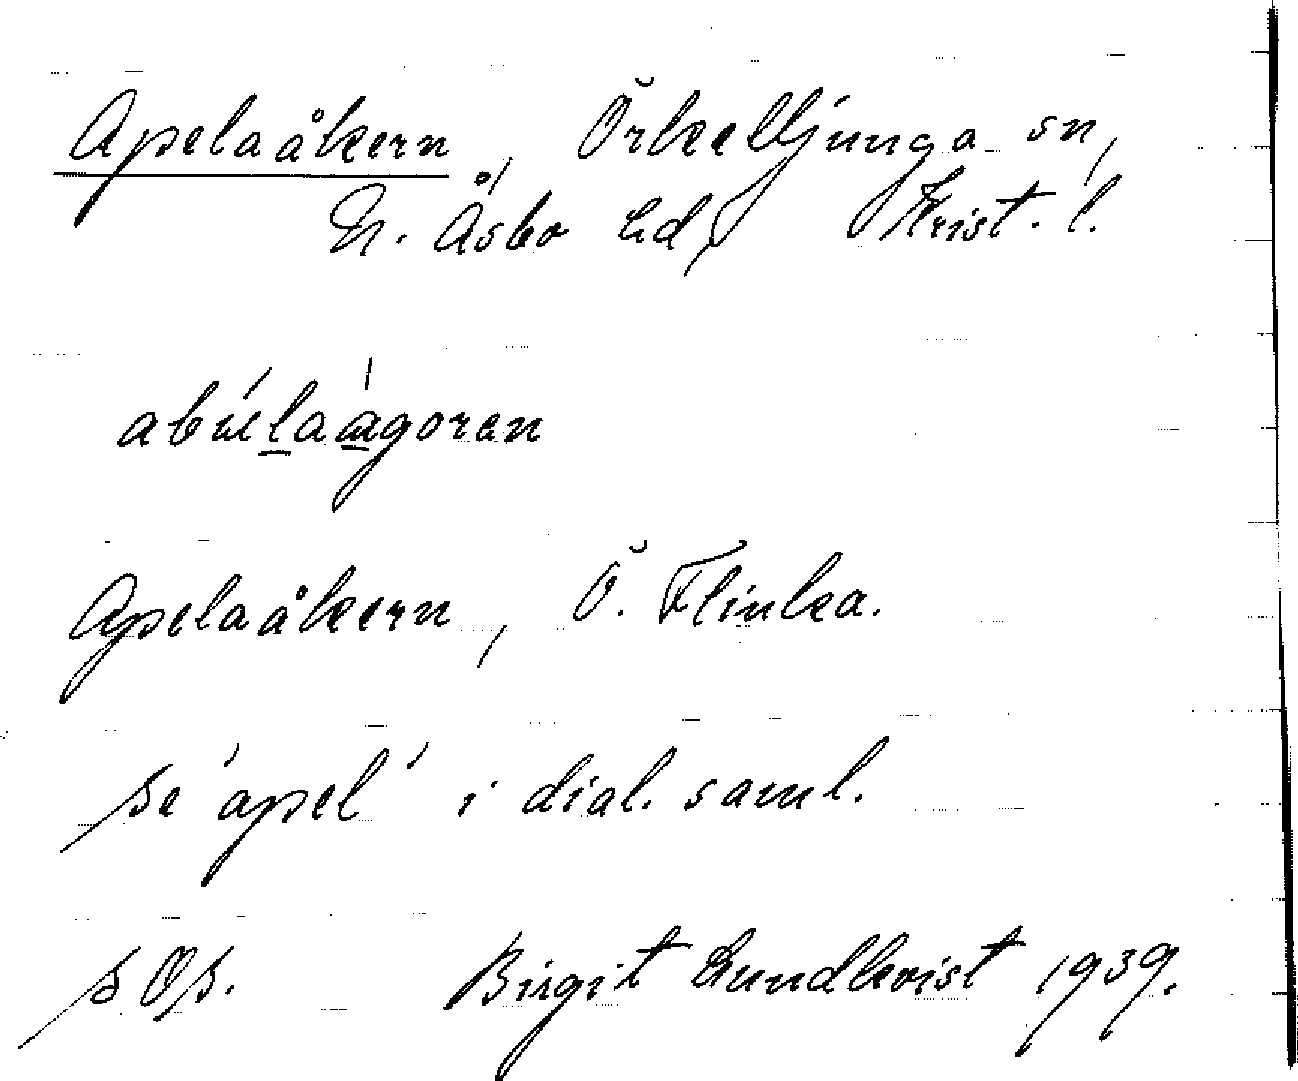 Apelaåkern, Örkelljunga sn,
N. Åsbo hd, Krist. l.
Apelaåkern, Ö. Flinka.
se 'apel' i dial. saml.
Birgit Lundkvist 1939.